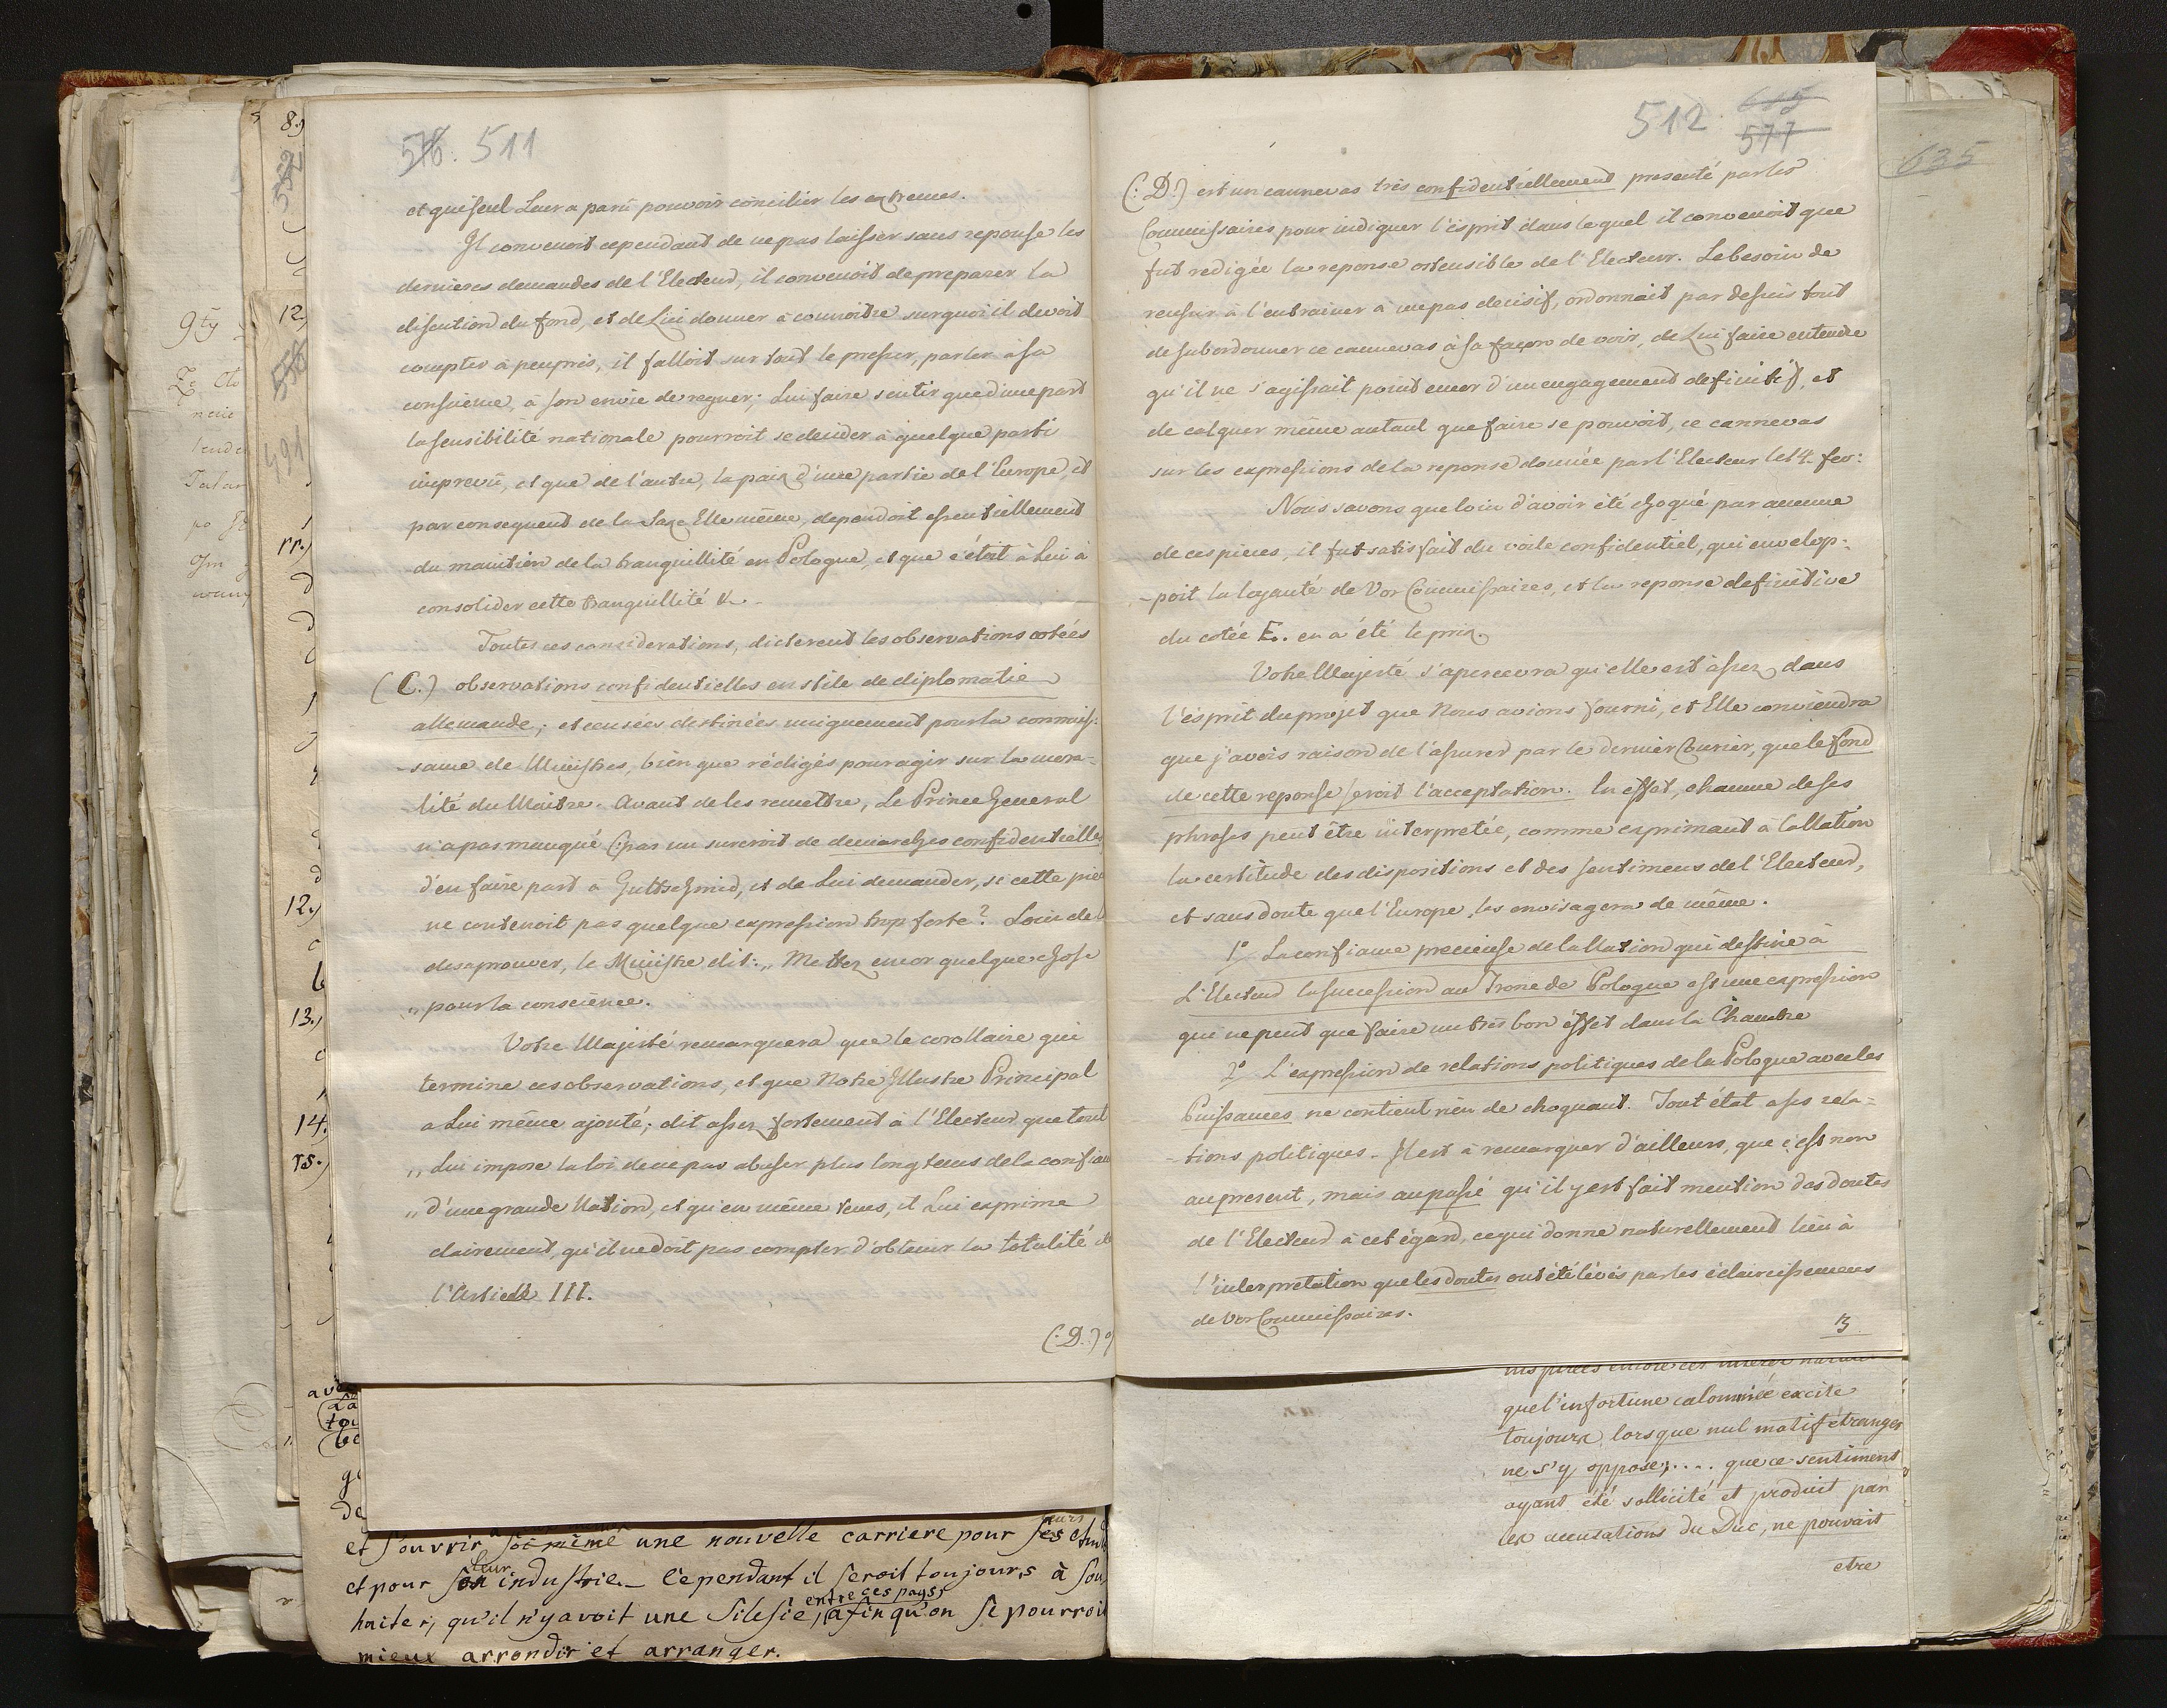 576. 511
et qui seul Leur a parû pouvoir concilier les extremes.
Il convenoit cependant de ne pas laisser sans reponse les
dernieres demandes de l'Electeur, il convenoit de preparer la
discution du fond, et de Lui donner à connoitre sur quoi il devoit
compter à peuprès, il falloit sur tout le presser, parler à sa
conscience, à son envie de regner; Lui faire sentir que d'une part
la sensibilité nationale pourroit se decider à quelque parti
imprevû, et que de l'autre, la paix d'une partie de l'Europe, et
par consequent de la Saxe Elle même, dependoit essentiellement
du maintien de la tranquillité en Pologne, et que c'étoit à Lui à
consolider cette tranquillité &c.
Toutes ces considerations, dicterent les observations cotées
(C.) observations confidentielles en stile de diplomatie
allemande; et censées destinées uniquement pour la connois-
-sance de Ministres, bien que rédigés pour agir sur la mora-
lité du Maitre. Avant de les remettre, Le Prince General
n'a pas manqué (: par un surcroit de demarches confidentielles
d'en faire part à Guttschmid, et de Lui demander, si cette piece
ne contenoit pas quelque expression trop forte? Loin de l
desaprouver, le Ministre dit: „ Mettez encor quelque chose
„ pour la conscience.
Votre Majesté remarquera que le corollaire qui
termine ces observations, et que Notre Illustre Principal
a Lui même ajouté, dit assez fortement à l'Electeur que tout
„ Lui impose la loi de ne pas abuser plus long tems de la confian
„ d'une grande Nation, et qu'en même tems, il Lui exprime
clairement, qu'il ne doit pas compter d'obtenir la totalité de
l'Article III.
(: D.:)
512. 615
577
(: D:) est un cannevas très confidentiellement presenté par les
Commissaires pour indiquer l'ésprit dans lequel il convenoit que
fut redigée la reponse ostensible de l'Electeur. Le besoin de
reussir à l'entrainer à un pas decisif, ordonnait par dessus tout
de subordonner ce cannevas à sa façon de voir, de Lui faire entendre
qu'il ne s'agissait point encor d'un engagement definitif, et
de calquer même autant que faire se pouvoit, ce cannevas
sur les expressions de la reponse donnée par l'Electeur le 14. fev:
Nous savons que loin d'avoir été choqué par aucune
de ces pieces, il fut satisfait du voile confidentiel, qui envelop-
-poit la loyauté de Vos Commissaires, et la reponse definitive
du cotée E. en a été le prix.
Votre Majesté s'apercevra qu'elle est àssez dans
l'ésprit du projet que Nous avions fourni, et Elle conviendra
que j'avois raison de l'assurer par le dernier Courier, que le fond
de cette reponse seroit l'acceptation. En effet, chacune de ses
phrases peut être interpretée, comme exprimant à la Nation
la certitude des dispositions et des sentimens de l'Electeur,
et sans doute que l'Europe les envisagera de même.
1º La confiance precieuse de la Nation qui destine à
L'Electeur la succession au Trone de Pologne est une expression
qui ne peut que faire un très bon éffet dans la Chambre
2º L'expression de relations politiques de la Pologne avec les
Puissances ne contient rien de choquant. Tout état a ses rela-
-tions politiques. Il est à remarquer d'ailleurs, que c'est non
au present, mais au passé qu'il y est fait mention des doutes
de l'Electeur à cet égard, ce qui donne naturellement lieu à
l'interpretation que les doutes ont été levés par les éclaircissemens
de Vos Commissaires.
3
635
que l'infortune calomniée excite
toujours lorsque nul motif étranger
ne s'y oppose;.... que ce sentiment
ayant été sollicité et produit par
les accusations du Duc, ne pouvait
etre
et s'ouvrir soi même une nouvelle carriere pour ses
et pour son leur industrie. — Cependant il seroit toujours à sou
haiter, qu'il n'y avoit une Silesie, entre ces pays, afin qu'on se pourroit
mieux arrondir et arranger.
8.)
552
12.)
491
11.)
12.)
13.)
14.
15.)
9ty